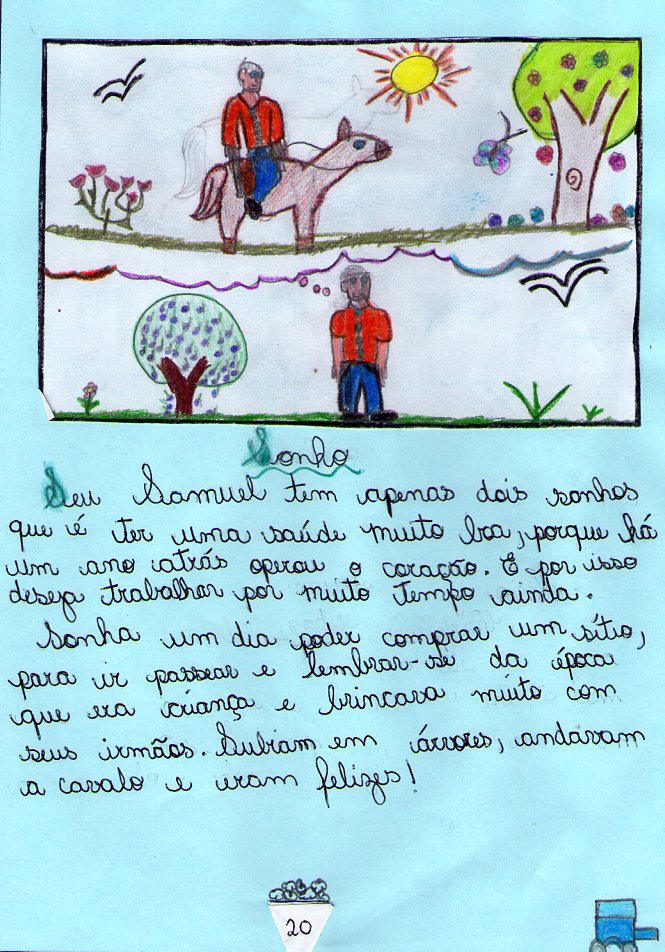 Sonho
Seu Samuel tem apenas dois sonhos
que é ter uma saúde muito boa, porque há
um ano atrás operou o coração. E por isso
deseja trabalhar por muito tempo ainda.
Sonha um dia poder comprar um sítio,
para ir passear e lembrar-se da época
que era criança e brincava muito com
seus irmãos. Subiam em árvores, andavam
a cavalo e eram felizes!
20